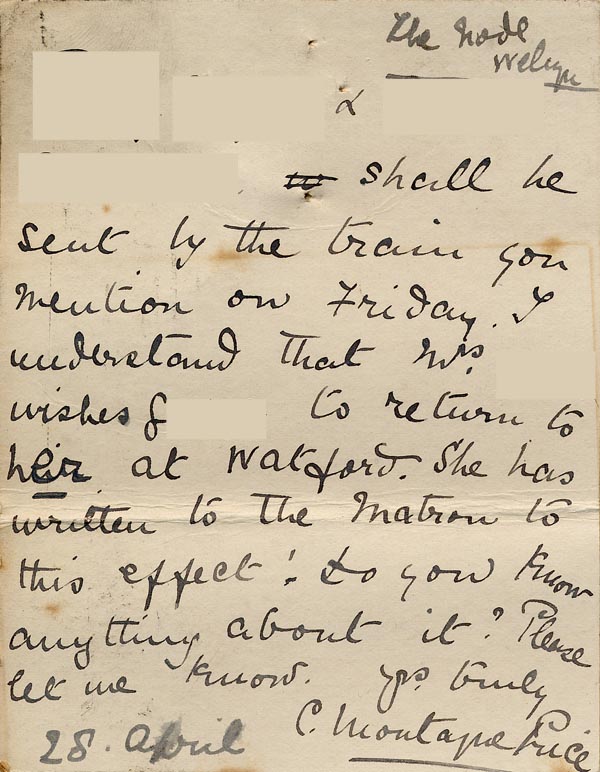 The Node
Welwyn
&
shall be
sent by the train you
mention on Friday. I
understand that Mrs.
wishes G
to return to
her at Watford. She has
written to the Matron to
this effect! Do you know
anything about it? Please
let me know. yrs. truly
C. Montague Price
28. April